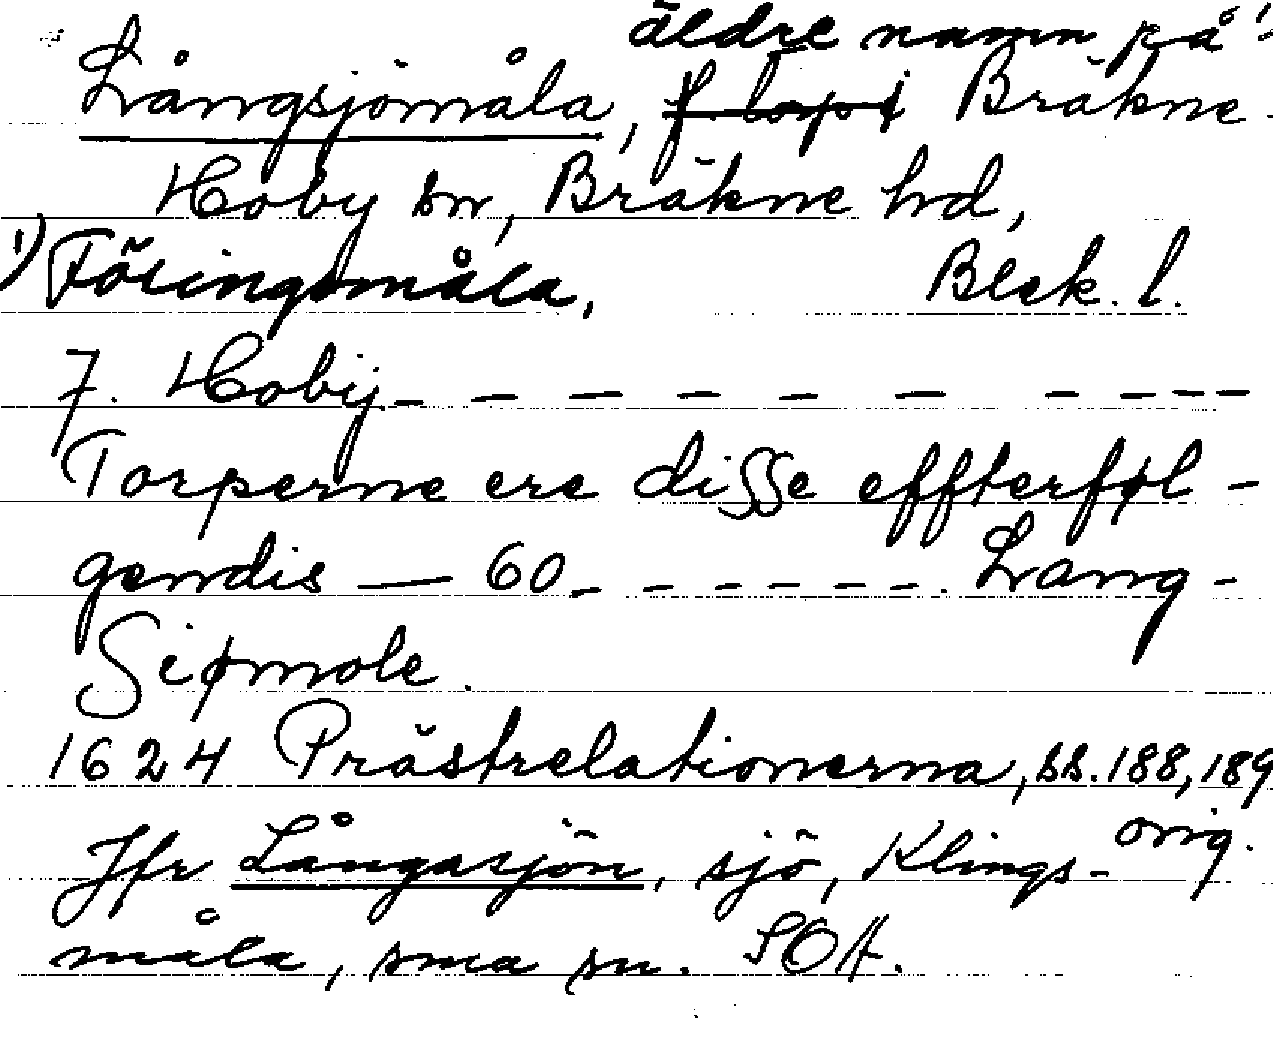 äldre namn på 1)
Långsjömåla, f. torp i Bräkne-
Hoby sn, Bräkne hd,
1) Töringsmåla, Blek. l.
7. Hobÿ _ _ _ _ _ _ _ _ _ _
Torperne ere disse effterføl-
gendis — 60 _ _ _ _ _ _ . Lang-
Siømole.
1624 Prästrelationerna, ss. 188, 189
orig.
Jfr Långasjön, sjö, Klings-
måla, sma sn. SOA.